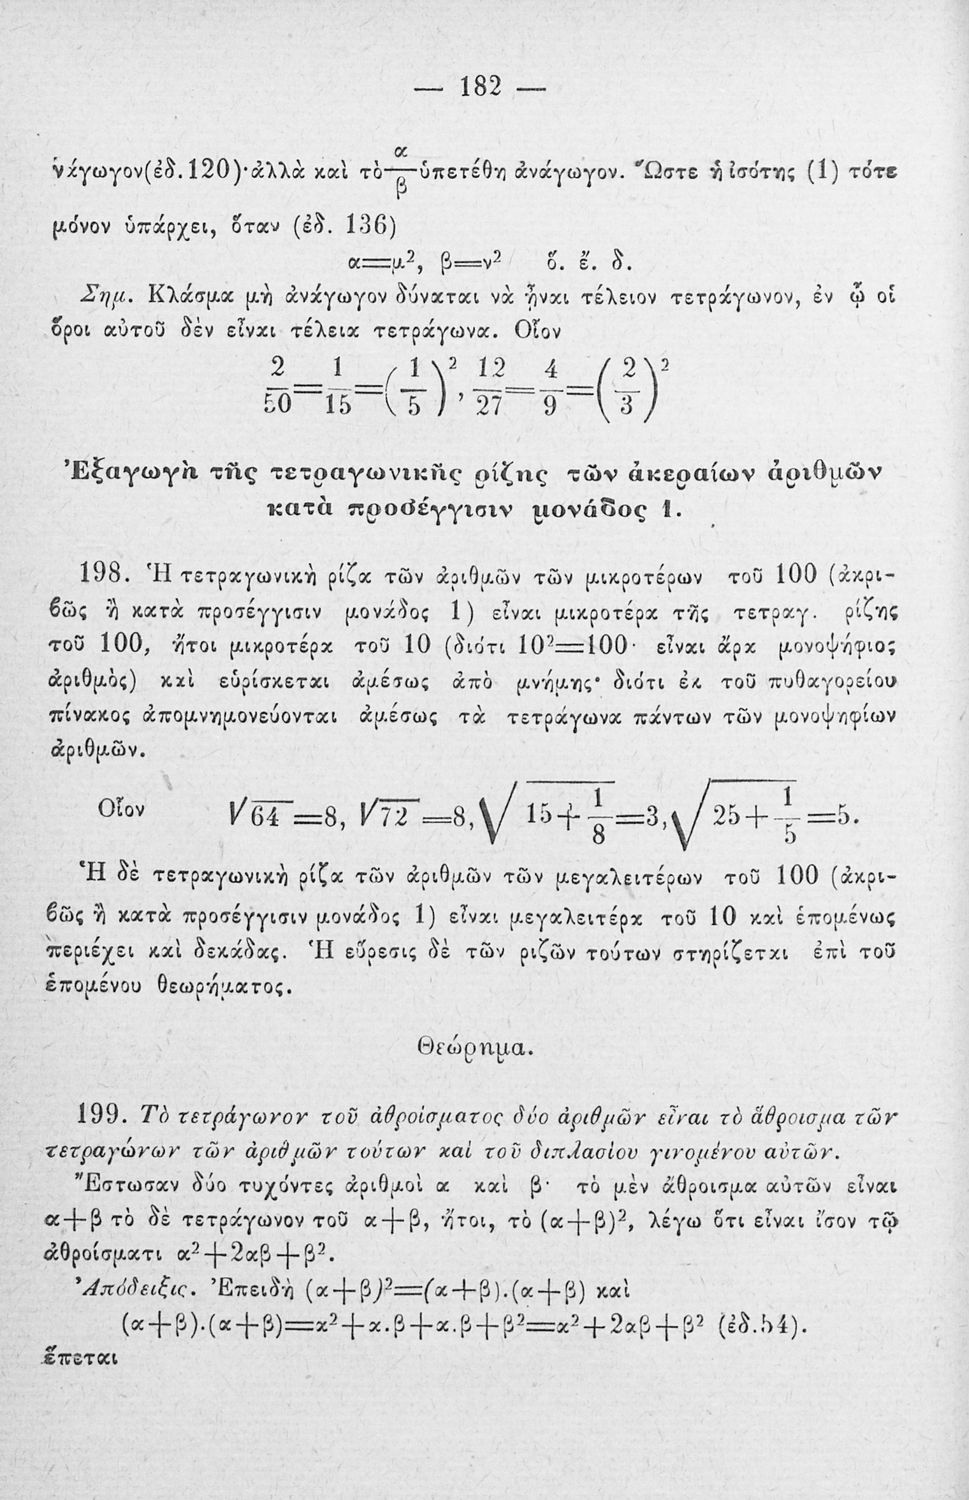 — 182 —
νάγωγον(ἐδ.120)·ἀλλὰ καὶ τὸ α/β ὑπετέθη ἀνάγωγον. Ὥστε ἡ ἰσότης (1) τότε
μόνον ὑπάρχει, ὅταν (ἐδ. 136)
α=μ², β=ν² ὅ. ἔ. δ.
Σημ. Κλάσμα μὴ ἀνάγωγον δύναται νὰ ᾖναι τέλειον τετράγωνον, ἐν ᾧ οἱ
ὅροι αὐτοῦ δὲν εἶναι τέλεια τετράγωνα. Οἷον
2/50=1/15=(1/5)², 12/27=4/9=(2/3)²
Ἐξαγωγὴ τῆς τετραγωνικῆς ρίζης τῶν ἀκεραίων ἀριθμῶν
κατὰ προσέγγισιν μονάδος 1.
198. Ἡ τετραγωνικὴ ρίζα τῶν ἀριθμῶν τῶν μικροτέρων τοῦ 100 (ἀκρι-
βῶς ἢ κατὰ προσέγγισιν μονάδος 1) εἶναι μικροτέρα τῆς τετραγ. ρίζης
τοῦ 100, ἤτοι μικροτέρα τοῦ 10 (διότι 10²=100· εἶναι ἄρα μονοψήφιος
ἀριθμὸς) καὶ εὑρίσκεται ἀμέσως ἀπὸ μνήμης· διότι ἐκ τοῦ πυθαγορείου
πίνακος ἀπομνημονεύονται ἀμέσως τὰ τετράγωνα πάντων τῶν μονοψηφίων
ἀριθμῶν.
Οἷον √64=8, √72=8, √15+1/8=3, √25+1/5=5.
Ἡ δὲ τετραγωνικὴ ρίζα τῶν ἀριθμῶν τῶν μεγαλειτέρων τοῦ 100 (ἀκρι-
βῶς ἢ κατὰ προσέγγισιν μονάδος 1) εἶναι μεγαλειτέρα τοῦ 10 καὶ ἑπομένως
περιέχει καὶ δεκάδας. Ἡ εὕρεσις δὲ τῶν ριζῶν τούτων στηρίζεται ἐπὶ τοῦ
ἑπομένου θεωρήματος.
Θεώρημα.
199. Τὸ τετράγωνον τοῦ ἀθροίσματος δύο ἀριθμῶν εἶναι τὸ ἄθροισμα τῶν
τετραγώνων τῶν ἀριθμῶν τούτων καὶ τοῦ διπλασίου γινομένου αὐτῶν.
Ἔστωσαν δύο τυχόντες ἀριθμοὶ α καὶ β· τὸ μὲν ἄθροισμα αὐτῶν εἶναι
α+β τὸ δὲ τετράγωνον τοῦ α+β, ἤτοι, τὸ (α+β)², λέγω ὅτι εἶναι ἴσον τῷ
ἀθροίσματι α²+2αβ+β².
Ἀπόδειξις. Ἐπειδὴ (α+β)²=(α+β).(α+β) καὶ
(α+β).(α+β)=α²+α.β+α.β+β²=α²+2αβ+β² (ἐδ.54).
ἕπεται